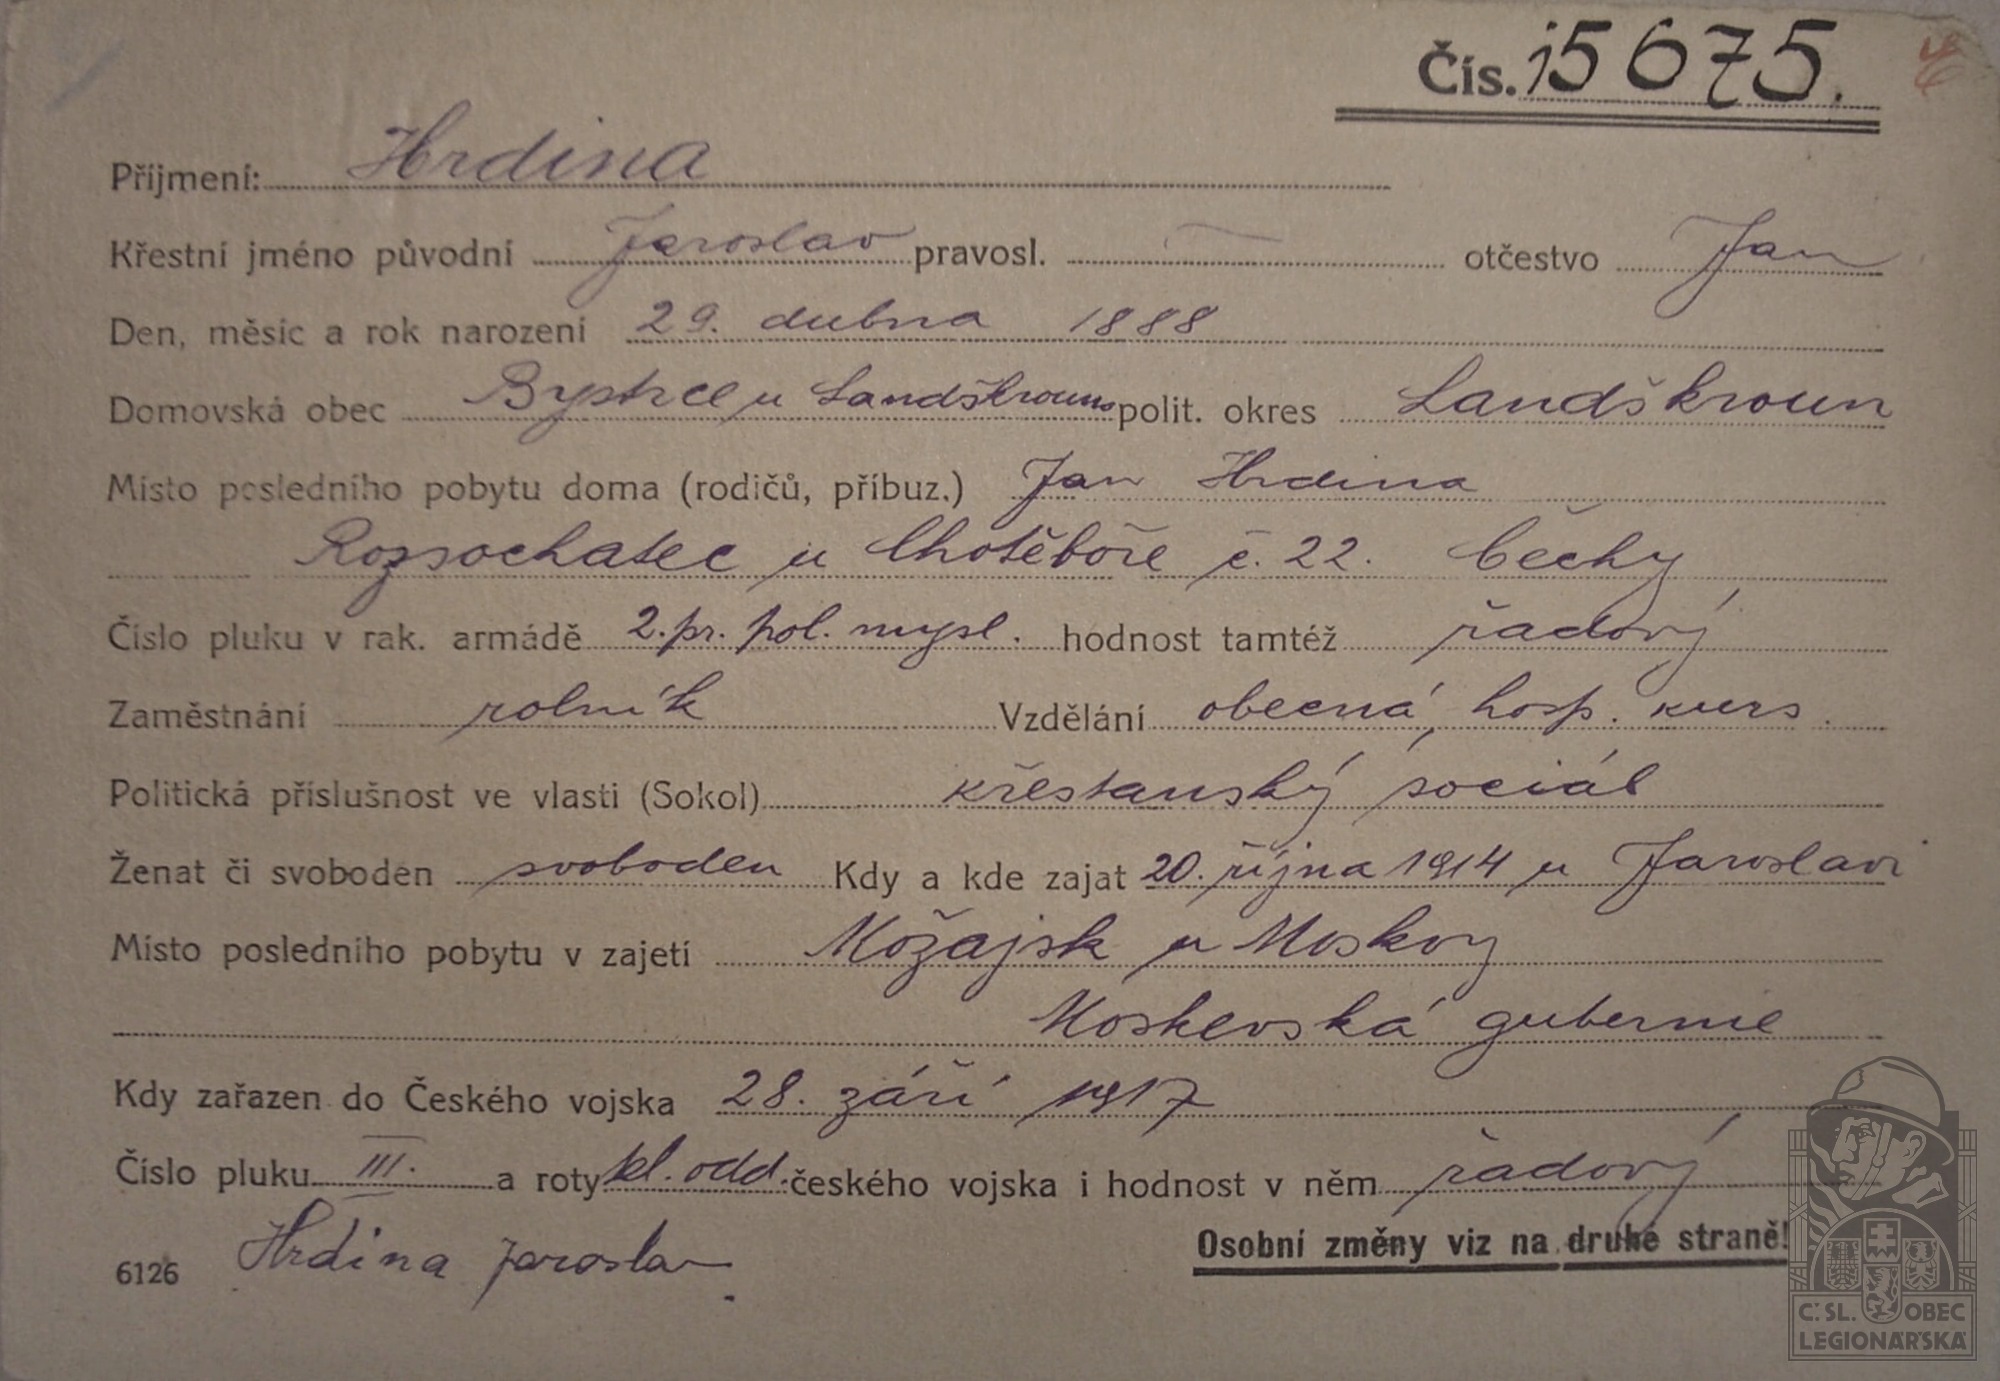 Čís. 15675.
Příjmení: Hrdina
Křestní jméno původní Jaroslav pravosl. — otčestvo Jan
Den, měsíc a rok narození 29. dubna 1888
Domovská obec Bystrec u Landškrouna polit. okres Landškroun
Místo posledního pobytu doma (rodičů, příbuz.) Jan Hrdina
Rozsochatec u Chotěboře č. 22. Čechy
Číslo pluku v rak. armádě 2. pr. pol. mysl. hodnost tamtéž řadový
Zaměstnání rolník Vzdělání obecná, hosp. kurs.
Politická příslušnost ve vlasti (Sokol) křestanský sociál
Ženat či svoboden svoboden Kdy a kde zajat 20. října 1914 u Jaroslavi
Místo posledního pobytu v zajetí Možajsk u Moskvy
Moskevská gubernie
Kdy zařazen do Českého vojska 28. září 1917
Číslo pluku III. a roty kl. odd. českého vojska i hodnost v něm řadový
Hrdina Jaroslav
6126
Osobní změny viz na druhé straně!
Č. SL. OBEC
LEGIONÁŘSKÁ